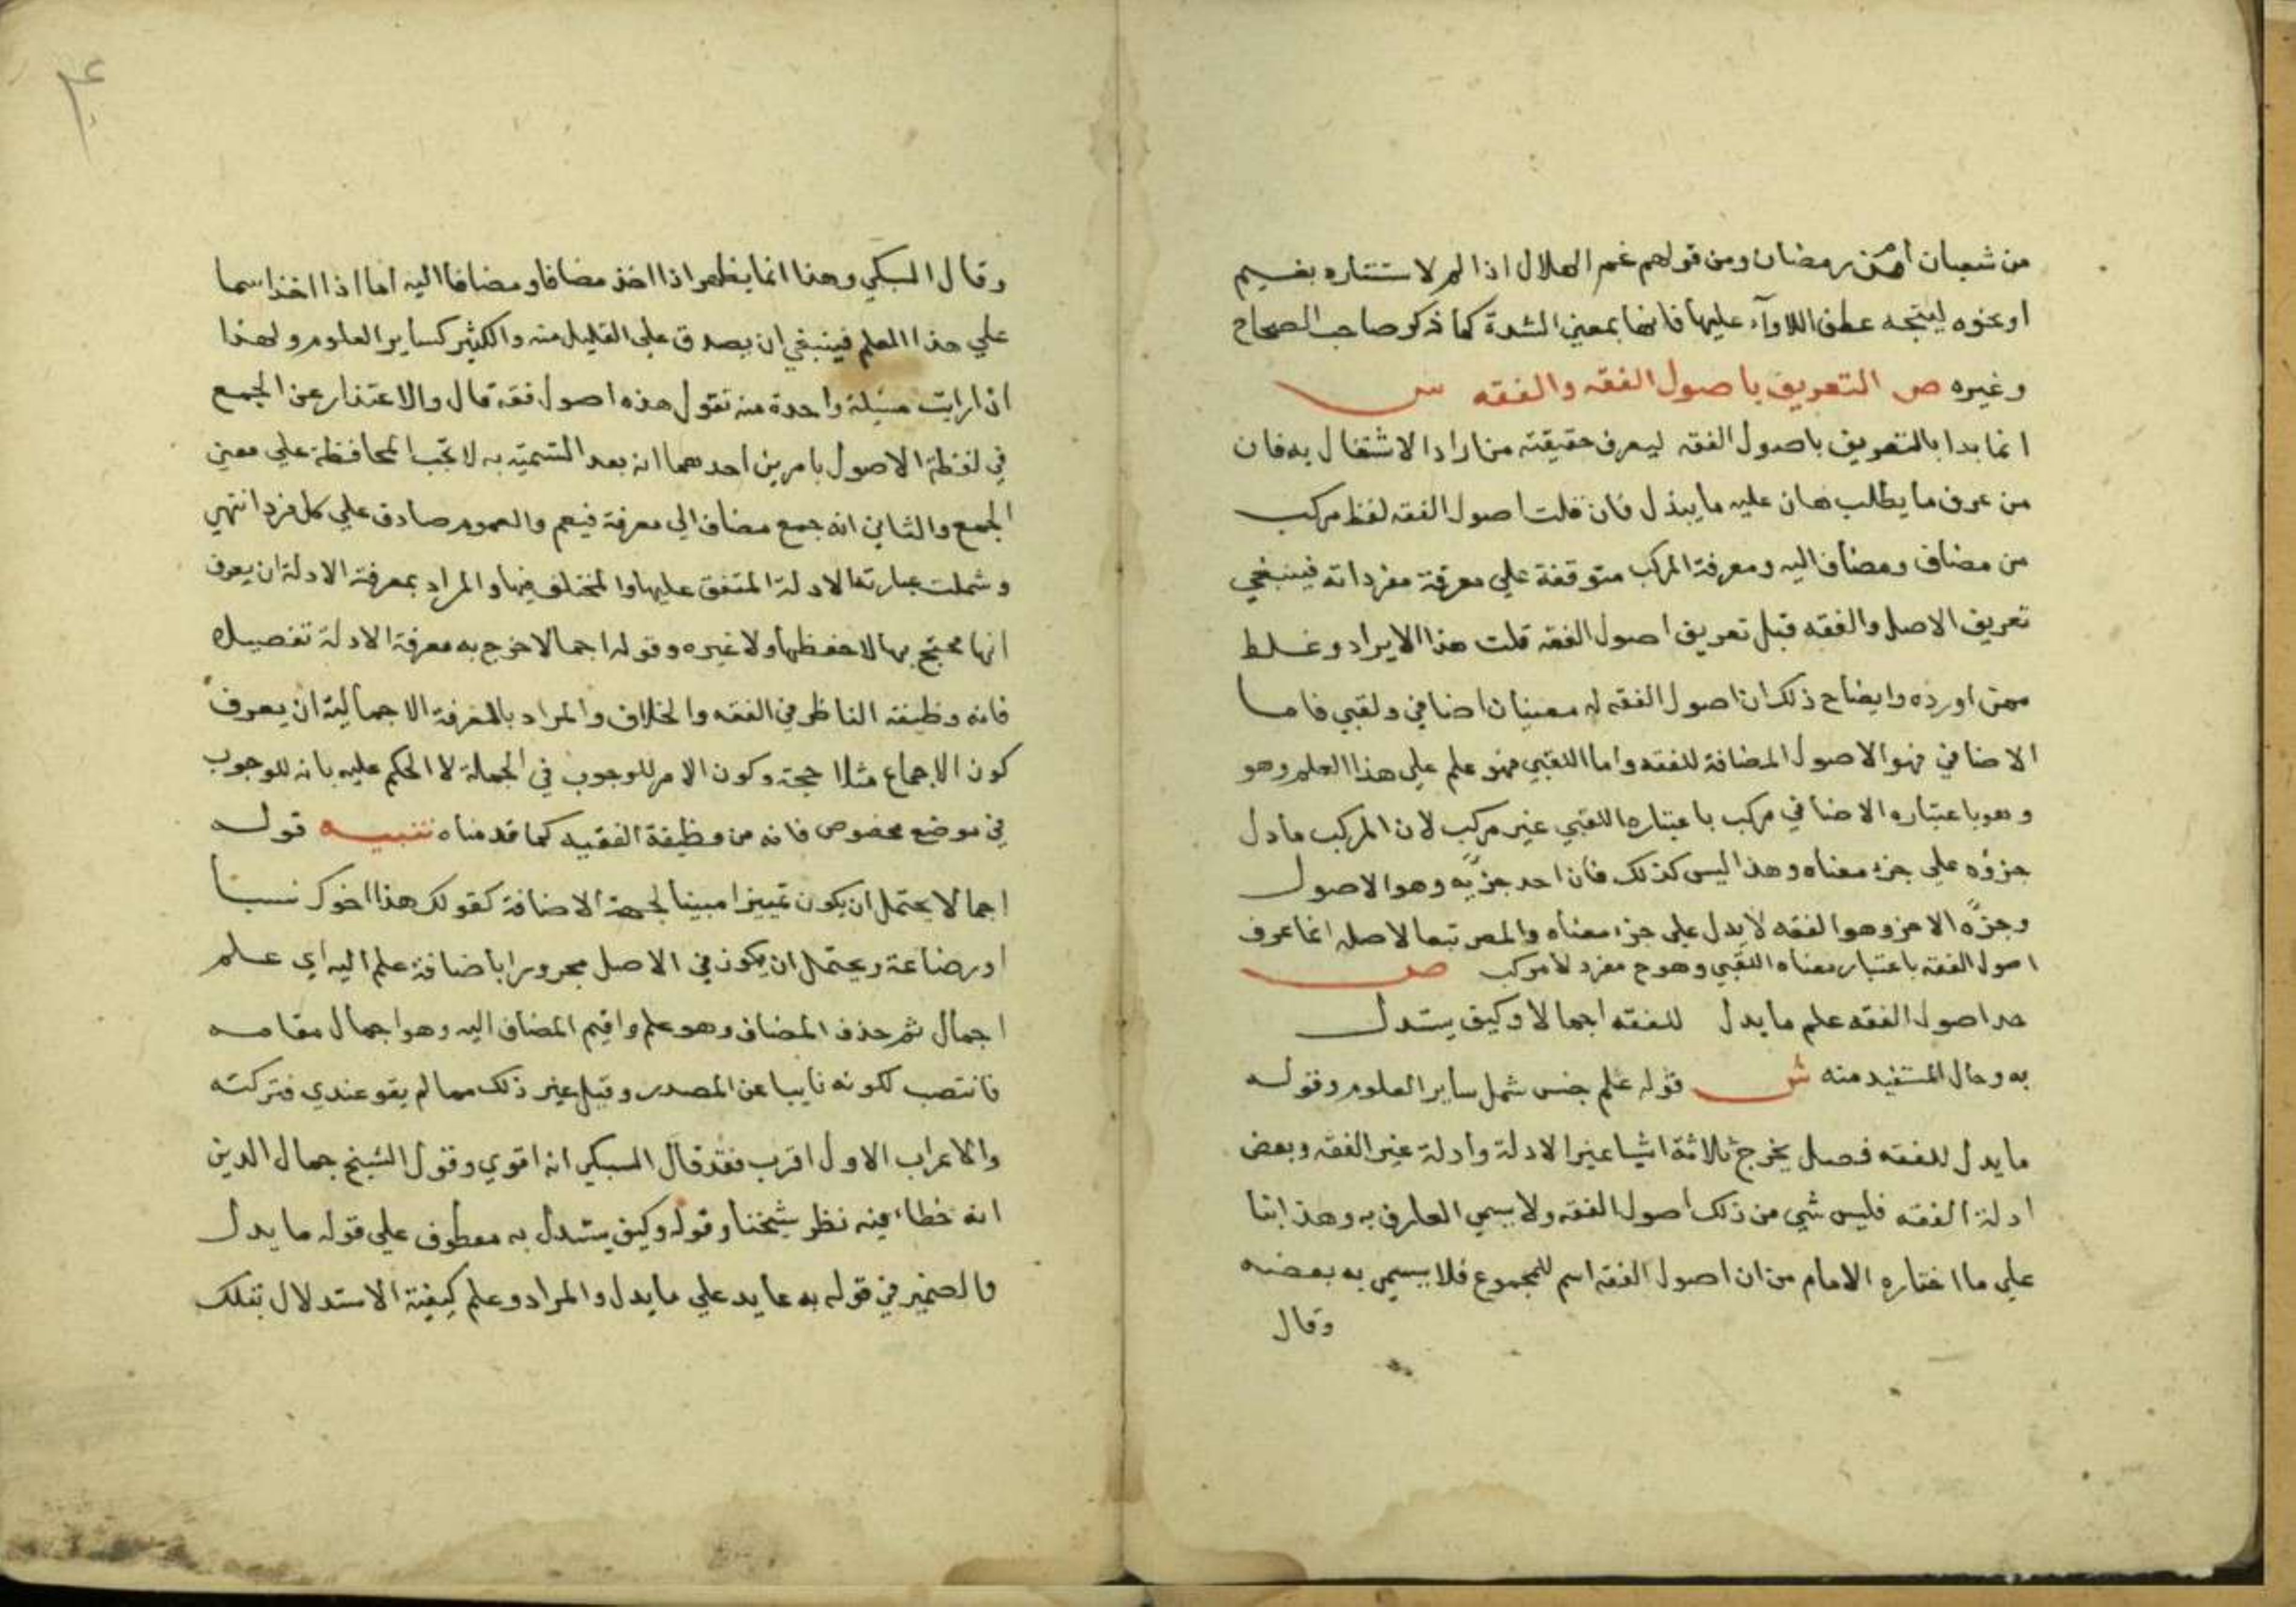 من شعبان أم من رمضان ومن قولهم غم الهلال اذا لم لاستتاره بغيم
او نحوه ليتجه عطف اللاوآء عليها فانها بمعنى الشدة كما ذكر صاحب الصحاح
وغيره ص التعريف باصول الفقه والفقه ش
انما بدا بالتعريف باصول الفقه ليعرف حقيقته من اراد الاشتغال به فان
من عرف ما يطلب هان عليه ما يبذل فان قلت اصول الفقه لفظ مركب
من مضاف ومضاف اليه ومعرفة المركب متوقفة علي معرفة مفرداته فينبغي
تعريف الاصل والفقه قبل تعريف اصول الفقه قلت هذا الايراد وغلط
ممن اورده وايضاح ذلك ان اصول الفقه له معنيان اضافي ولقبي فاما
الاضافي فهو الاصول المضافة للفقه واما اللقبي فهو علم علي هذا العلم وهو
وهو باعتباره الاضافي مركب باعتباره اللقبي غير مركب لان المركب ما دل
جزؤه علي جزء معناه وهذا ليس كذلك فان احد جزئيه وهو الاصول
وجزؤه الاخر وهو الفقه لا يدل علي جزء معناه والمص تبعا لاصله انما عرف
اصول الفقه باعتبار معناه اللقبي وهو ح مفرد لا مركب ص
حد اصول الفقه علم ما يدل للفقه اجمالا وكيف يستدل
به وحال المستفيد منه ش قوله علم جنس شمل ساير العلوم وقوله
ما يدل للفقه فصل يخرج ثلاثة اشيا غير الادلة وادلة غير الفقه وبعض
ادلة الفقه فليس شي من ذلك اصول الفقه ولا يسمي العارف به وهذا بنا
علي ما اختاره الامام من ان اصول الفقه اسم للمجموع فلا يسمي به بعضه
وقال
وقال السبكي وهذا انما يظهر اذا اخذ مضافا ومضافا اليه اما اذا اخذ اسما
علي هذا العلم فينبغي ان يصدق علي القليل منه والكثير كساير العلوم ولهذا
اذا رايت مسيلة واحدة منه تقول هذه اصول فقه قال والاعتذار عن الجمع
في لفظة الاصول بامرين احدهما انه بعد التسمية به لا تجب المحافظة علي معني
الجمع والثاني انه جمع مضاف الي معرفة فيعم والعموم صادق علي كل فرد انتهي
وشملت عبارته الادلة المتفق عليها والمختلف فيها والمراد بمعرفة الادلة ان يعرف
انها محتج بها لا حفظها ولا غيره وقوله اجمالا خرج به معرفة الادلة تفصيلا
فانه وظيفة الناظر في الفقه والخلاف والمراد بالمعرفة الاجمالية ان يعرف
كون الاجماع مثلا حجة وكون الامر للوجوب في الجملة لا الحكم عليه بانه للوجوب
في موضع مخصوص فانه من وظيفة الفقيه كما قدمناه تنبيه قوله
اجمالا يحتمل ان يكون تمييزا مبينا لجهة الاضافة كقولك هذا اخوك نسبا
او رضاعة ويحتمل ان يكون في الاصل مجرورا باضافة علم اليه اي علم
اجمال ثم حذف المضاف وهو علم واقيم المضاف اليه وهو اجمال مقامه
فانتصب لكونه نايبا عن المصدر وقيل غير ذلك مما لم يقو عندي فتركته
والاعراب الاول اقرب فقد قال السبكي انه اقوي وقول الشيخ جمال الدين
انه خطاء فيه نظر شيخنا وقوله وكيف يستدل به معطوف علي قوله ما يدل
والضمير في قوله به عايد علي ما يدل والمراد وعلم كيفية الاستدلال بتلك